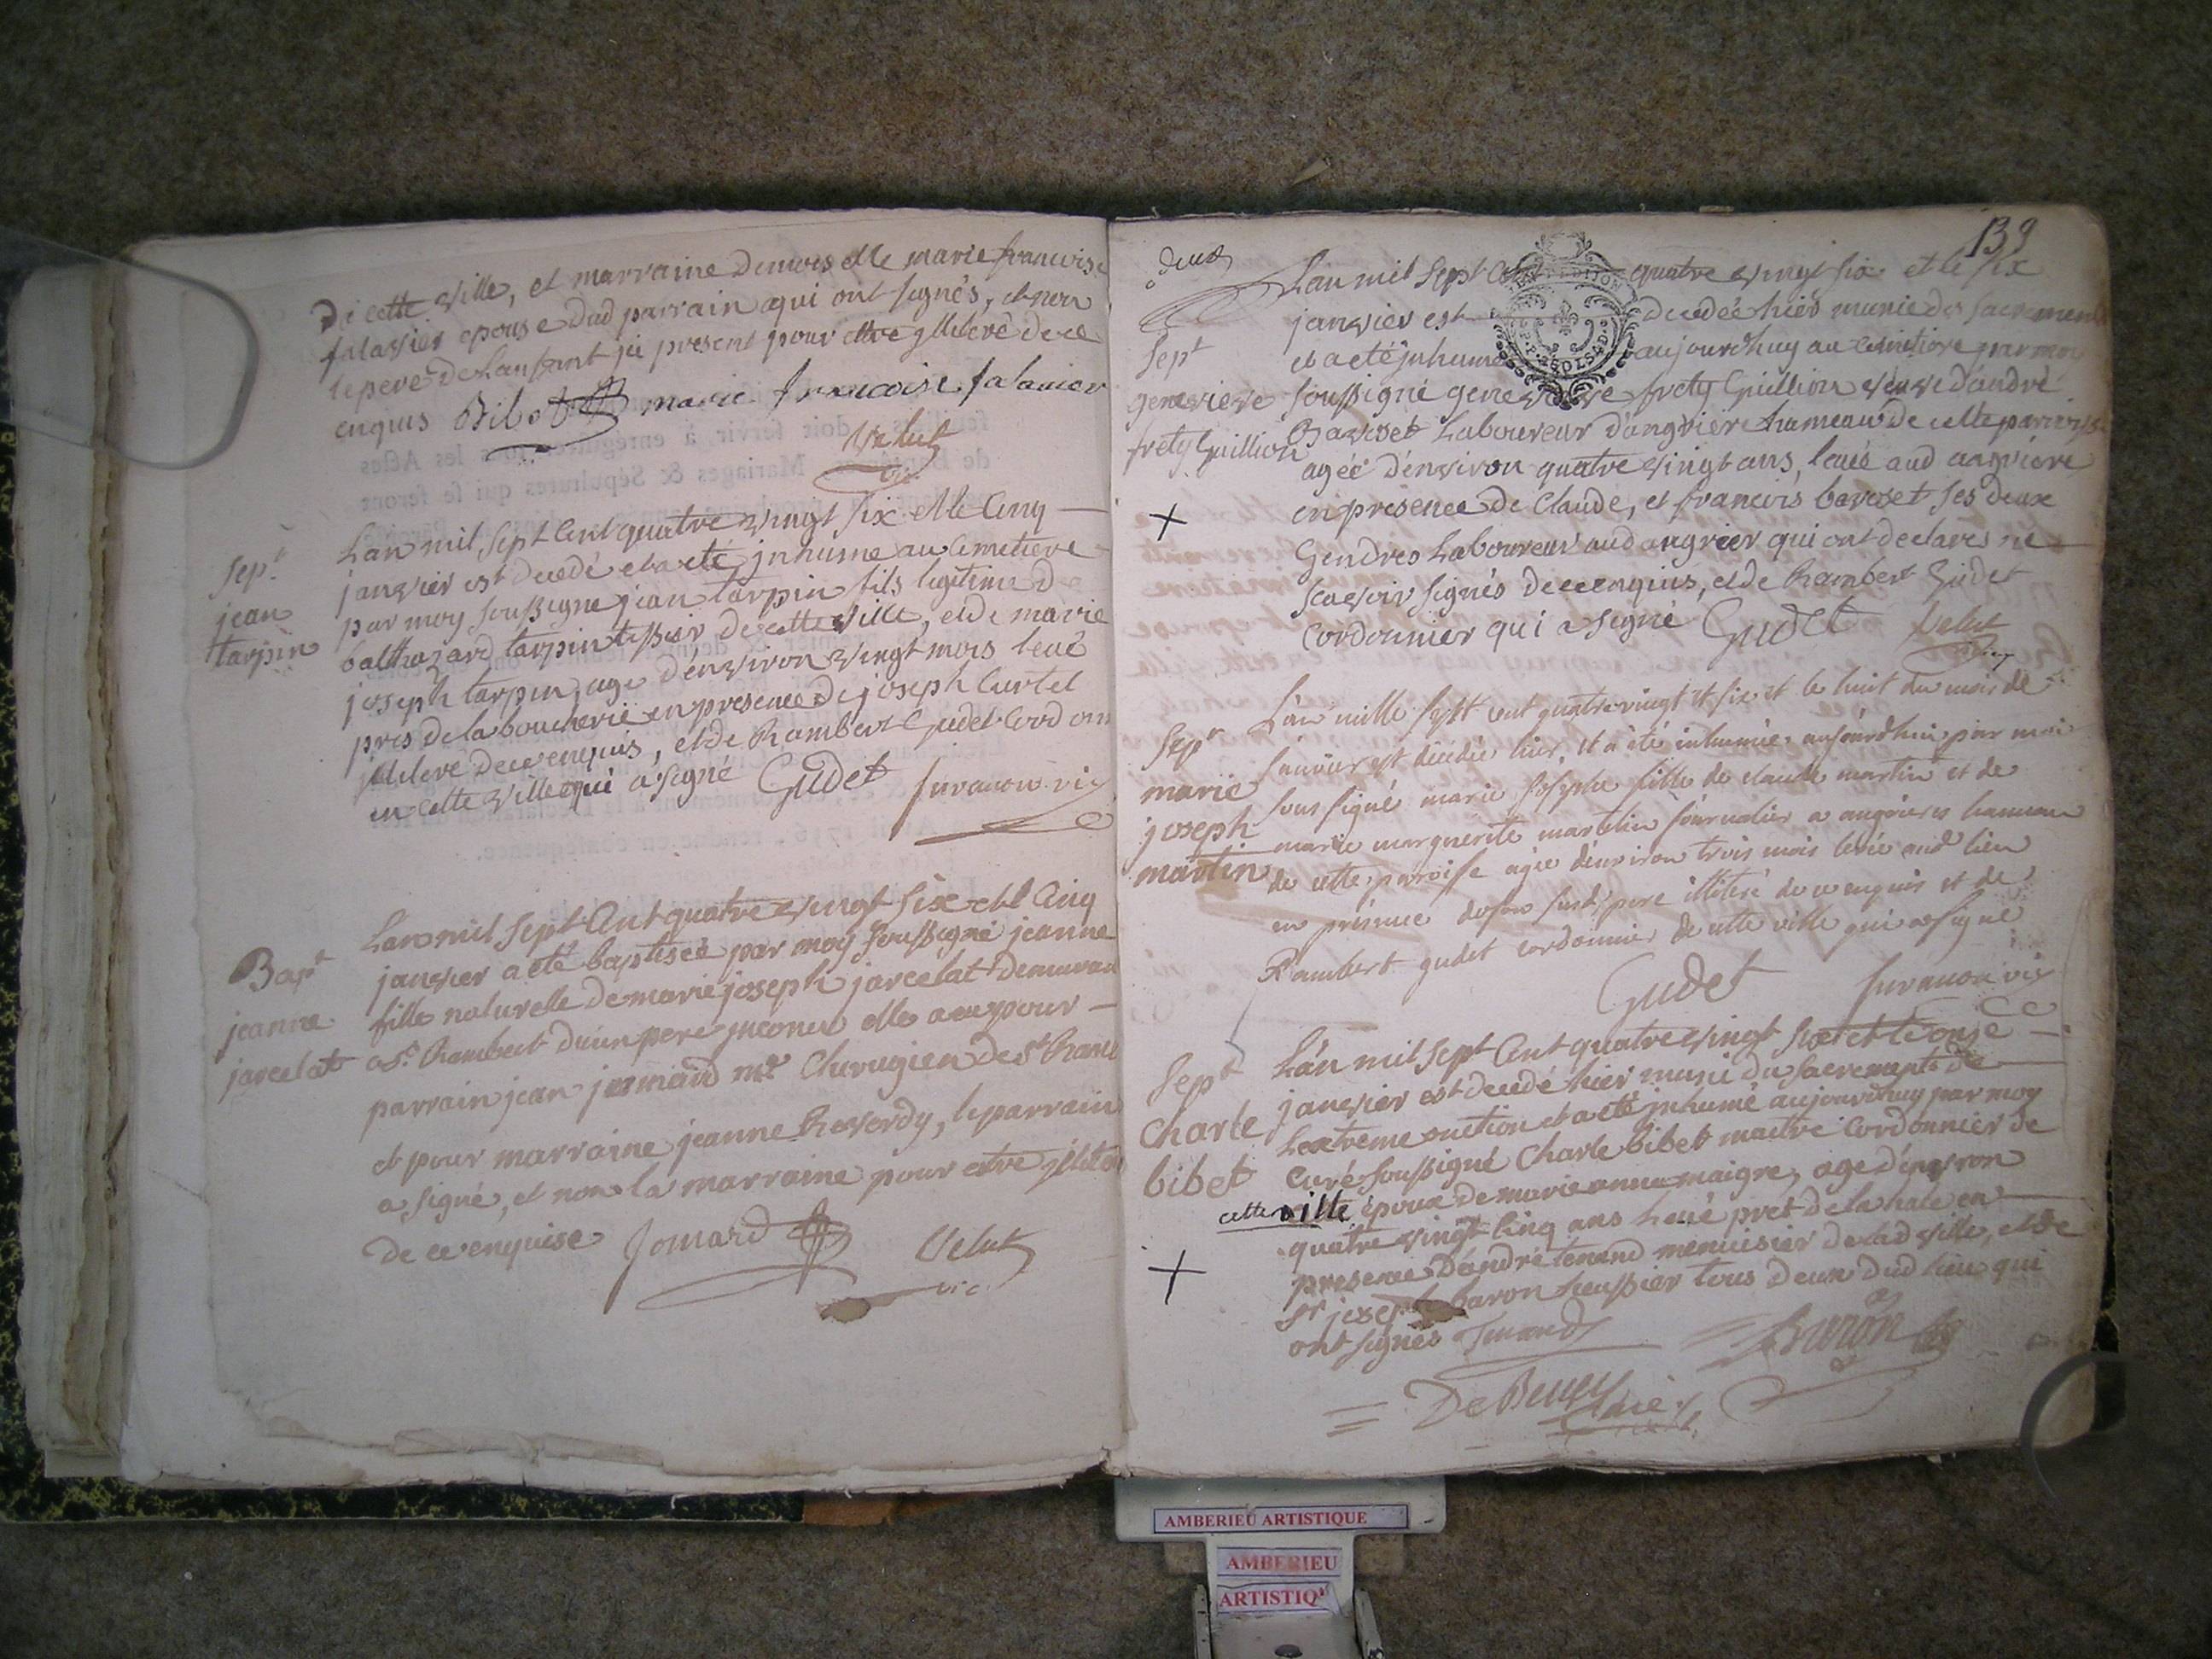 de cette ville, et marraine demoiselle marie francoise
falavier epouse dud parrain qui ont signés, et non
le pere de lanfant ici present pour etre jllitere de ce
enquis Bibet marie francoise falavier
Velut
vic
Sept
jean
tarpin
Lan mil sept Cent quatre vingt six et le Cinq
janvier est decedé et a eté jnhumé au Cimetiere
par moy soussigné jean tarpin fils legitime de
balthazard tarpin tissier de cette ville, et de marie
joseph tarpin, age d'environ vingt mois levé
pres de la boucherie en presence de joseph Curtet
jllitere de ce enquis, et de Rambert Gudet Cordonn
en cette ville qui a signé Gudet furanon vic
Bapt
jeanne
jarcelat
Lan mil sept Cent quatre vingt six et le Cinq
janvier a eté baptisée par moy soussigné jeanne
fille naturelle de marie joseph jarcelat demeurau
a St Rambert d'un pere jnconu elle a eu pour
parrain jean jomard mtre Chirugien de St Ram
et pour marraine jeanne Reverdy, le parrain
a signé, et non la marraine pour etre jllitere
de ce enquise Jomard Velut
vic
139
deux
Sept
genevieve
frety Guillion
L'an mil sept Cent quatre vingt six et le six
janvier est decedée hier munie des sacremens
et a eté jnhumée aujourdhuy au cimetiere par moy
soussigné genevieve frety Guillion veuve d'andré
Bavoset Laboureur d'angrier hameau de cette parroisse
agée d'environ quatre vingt ans, levée aud angriere
en presence de Claude, et francois bavoset ses deux
Gendres Laboureur aud angrier qui ont declarés ne
scavoir signés de ce enquis, et de Rambert Gudet
Cordonnier qui a signé Gudet Velut
Sepr
marie
joseph
martin
L'an mille sept cent quatre vingt et six et le huit du mois de
janvier est décédée hier, et a été inhumée aujourd'hui par moi
sous signé marie josephe fille de claude martin et de
marie marguerite martelin journalier a angrieres hameau
de cette paroisse agée d'environ trois mois levée aud lieu
en présence de son susd pere illiteré de ce enquis et de
Rambert gudet cordonnier de cette ville qui a signé
Gudet furanon vic
Sept
Charle
bibet
L'an mil sept Cent quatre vingt six et le onze
janvier est decedé hier muni du sacrement de
Lextreme onction et a eté jnhumé aujourdhuy par moy
Curé soussigné Charle bibet maitre Cordonnier de
cette ville époux de marie anne maigre, age d'environ
quatre vingt Cinq ans Levé pret de la hale en
presence D'andré tenand menuisier de lad ville, et de
Sr joseph baron huissier tous deux dud lieu qui
ont signés Tenand Baron
AMBERIEU ARTISTIQUE
AMBERIEU
ARTISTIQ